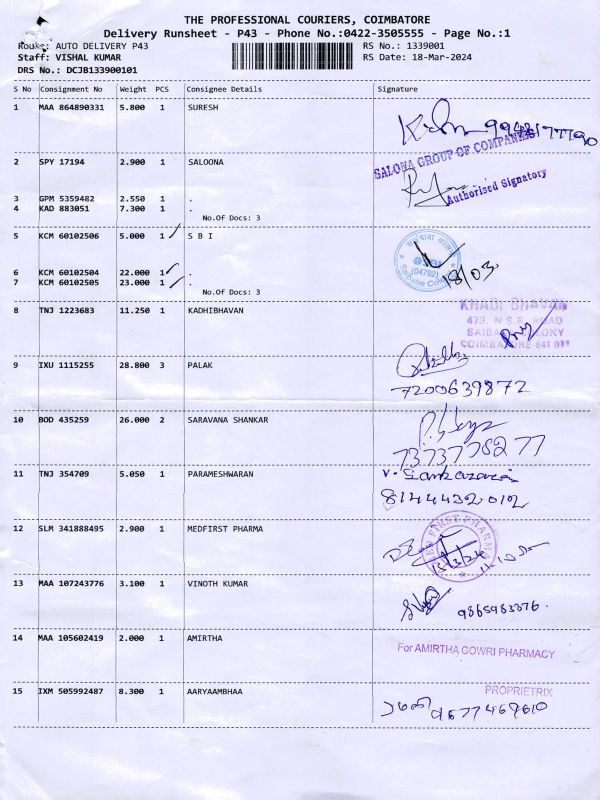 THE PROFESSIONAL COURIERS, COIMBATORE
Delivery Runsheet - P43 - Phone No.:0422-3505555 - Page No.:1
Route: AUTO DELIVERY P43 RS No.: 1339001
Staff: VISHAL KUMAR RS Date: 18-Mar-2024
DRS No.: DCJB133900101
S No Consignment No Weight PCS Consignee Details Signature
1 MAA 864890331 5.800 1 SURESH
2 SPY 17194 2.900 1 SALOONA
SALONA GROUP OF COMPANIES
Authorised Signatory
3 GPM 5359482 2.550 1 .
4 KAD 883051 7.300 1 .
No.Of Docs: 3
5 KCM 60102506 5.000 1 S B I
(04792)
18/03
6 KCM 60102504 22.000 1 .
7 KCM 60102505 23.000 1 .
No.Of Docs: 3
8 TNJ 1223683 11.250 1 KADHIBHAVAN
KHADI BHAVAN
473, N.S.R. ROAD
SAIBABA COLONY
COIMBATORE-641 011
9 IXU 1115255 28.800 3 PALAK
7200639872
10 BOD 435259 26.000 2 SARAVANA SHANKAR
11 TNJ 354709 5.050 1 PARAMESHWARAN
8144432012
12 SLM 341888495 2.900 1 MEDFIRST PHARMA
MED FIRST PHARMA
13 MAA 107243776 3.100 1 VINOTH KUMAR
9865983376.
14 MAA 105602419 2.000 1 AMIRTHA
For AMIRTHA GOWRI PHARMACY
PROPRIETRIX
15 IXM 505992487 8.300 1 AARYAAMBHAA